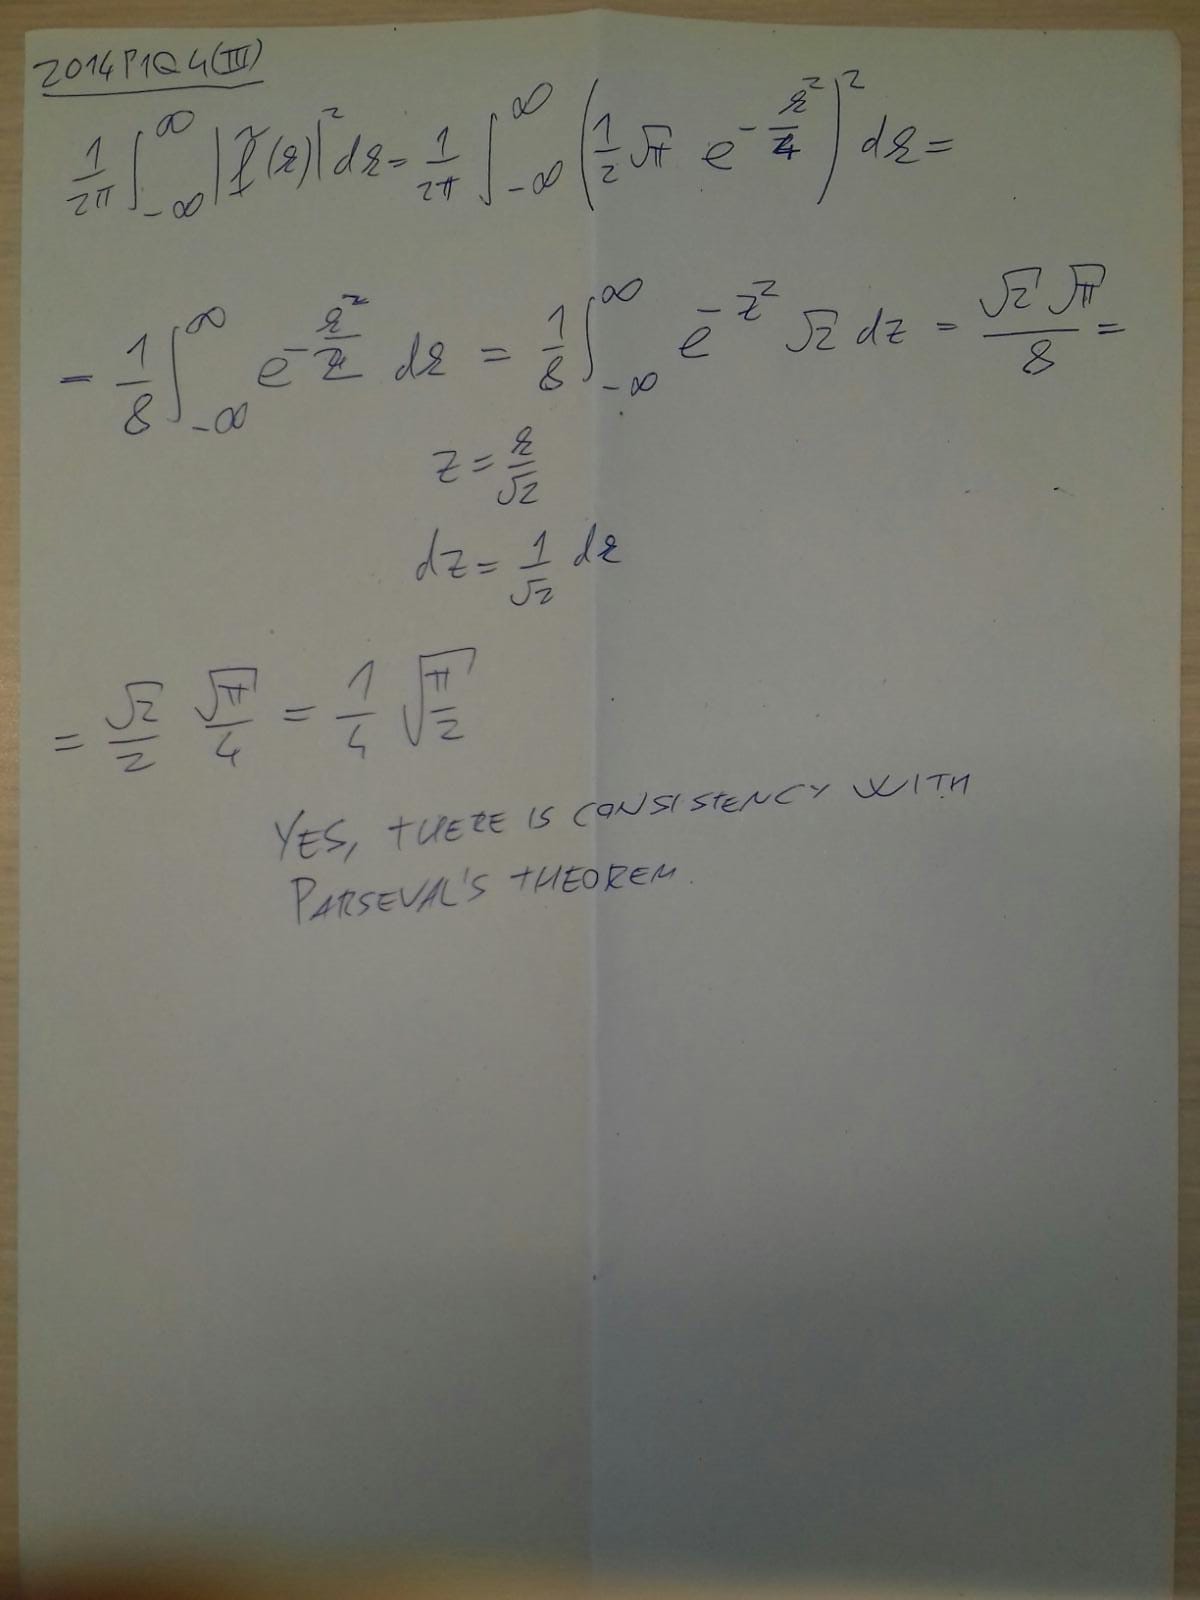 2014P1Q4(III)
1/2π ∫_{-∞}^{∞} |f̃(k)|² dk = 1/2π ∫_{-∞}^{∞} (1/2 √π e^{-k²/4})² dk =
= 1/8 ∫_{-∞}^{∞} e^{-k²/2} dk = 1/8 ∫_{-∞}^{∞} e^{-z²} √2 dz = √2 √π / 8 =
z = k/√2
dz = 1/√2 dk
= √2/2 √π/4 = 1/4 √(π/2)
YES, THERE IS CONSISTENCY WITH
PARSEVAL'S THEOREM.